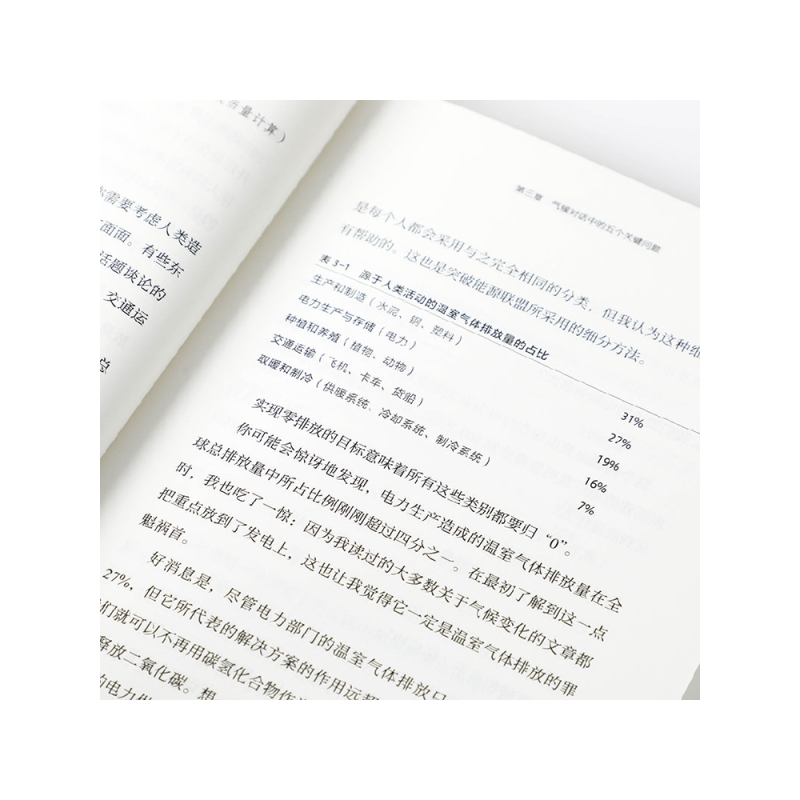 伤量计算）
需要考虑人类造
面面。有些东
话题谈论的
交通运
总
第三章 气候对话中的五个关键问题
是每个人都会采用与之完全相同的分类，但我认为这种细
有帮助的。这也是突破能源联盟所采用的细分方法。
表 3-1 源于人类活动的温室气体排放量的占比
生产和制造（水泥、钢、塑料） 31%
电力生产与存储（电力） 27%
种植和养殖（植物、动物） 19%
交通运输（飞机、卡车、货船） 16%
取暖和制冷（供暖系统、冷却系统、制冷系统） 7%
实现零排放的目标意味着所有这些类别都要归“0”。
你可能会惊讶地发现，电力生产造成的温室气体排放量在全
球总排放量中所占比例刚刚超过四分之一。在最初了解到这一点
时，我也吃了一惊：因为我读过的大多数关于气候变化的文章都
把重点放到了发电上，这也让我觉得它一定是温室气体排放的罪
魁祸首。
好消息是，尽管电力部门的温室气体排放只
27%，但它所代表的解决方案的作用远超
们就可以不再用碳氢化合物作
释放二氧化碳。想
的电力供